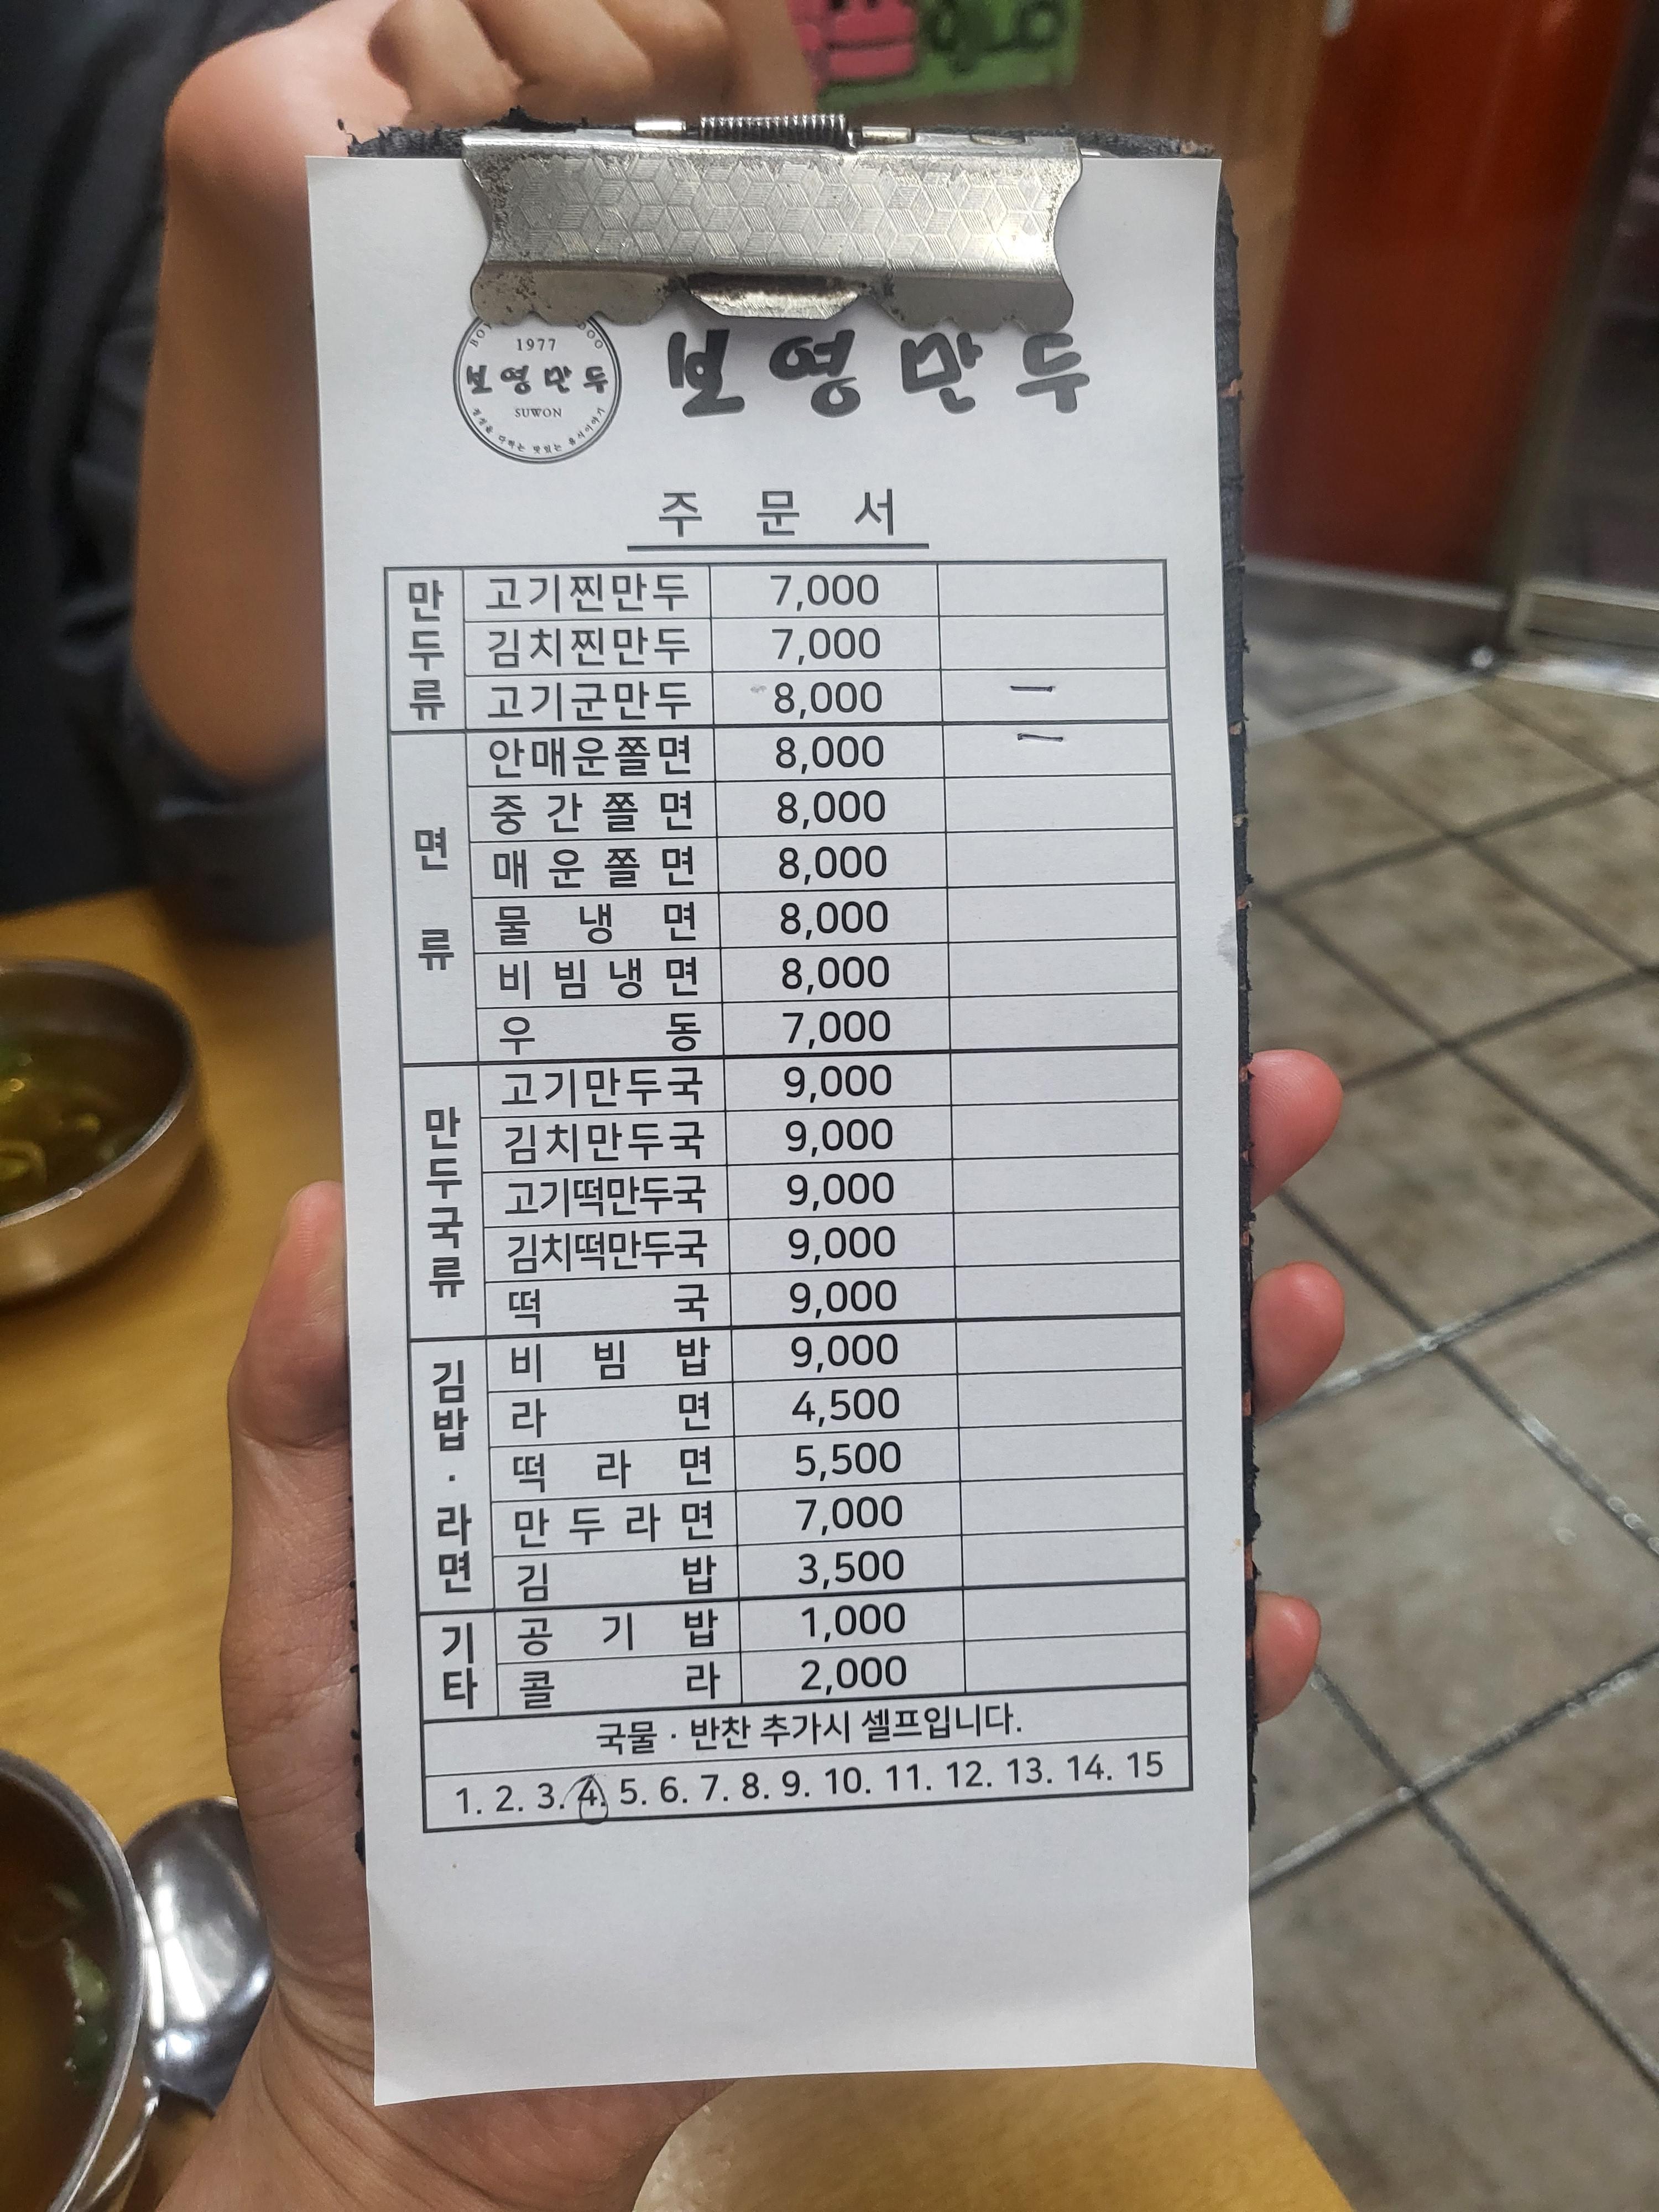 1977
보영만두
SUWON
보영만두
주 문 서
만두류
고기찐만두 7,000
김치찐만두 7,000
고기군만두 8,000 一
면류
안매운쫄면 8,000 一
중간쫄면 8,000
매운쫄면 8,000
물냉면 8,000
비빔냉면 8,000
우동 7,000
만두국류
고기만두국 9,000
김치만두국 9,000
고기떡만두국 9,000
김치떡만두국 9,000
떡국 9,000
김밥·라면
비빔밥 9,000
라면 4,500
떡라면 5,500
만두라면 7,000
김밥 3,500
기타
공기밥 1,000
콜라 2,000
국물 · 반찬 추가시 셀프입니다.
1. 2. 3. 4. 5. 6. 7. 8. 9. 10. 11. 12. 13. 14. 15